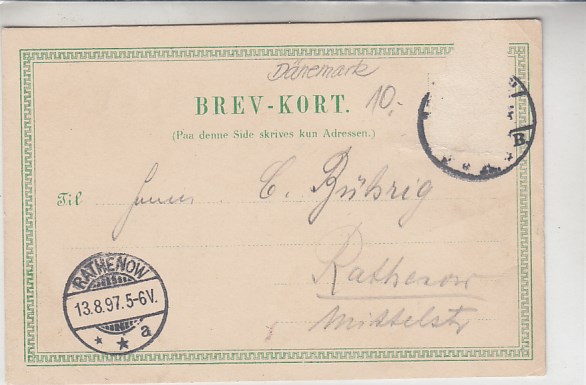 Dänemark
BREV-KORT. 10,-
(Paa denne Side skrives kun Adressen.)
B.
Til Herrn C. Bührig
Rathenow
Mittelstr
RATHENOW
13.8.97.5-6V.
* * a